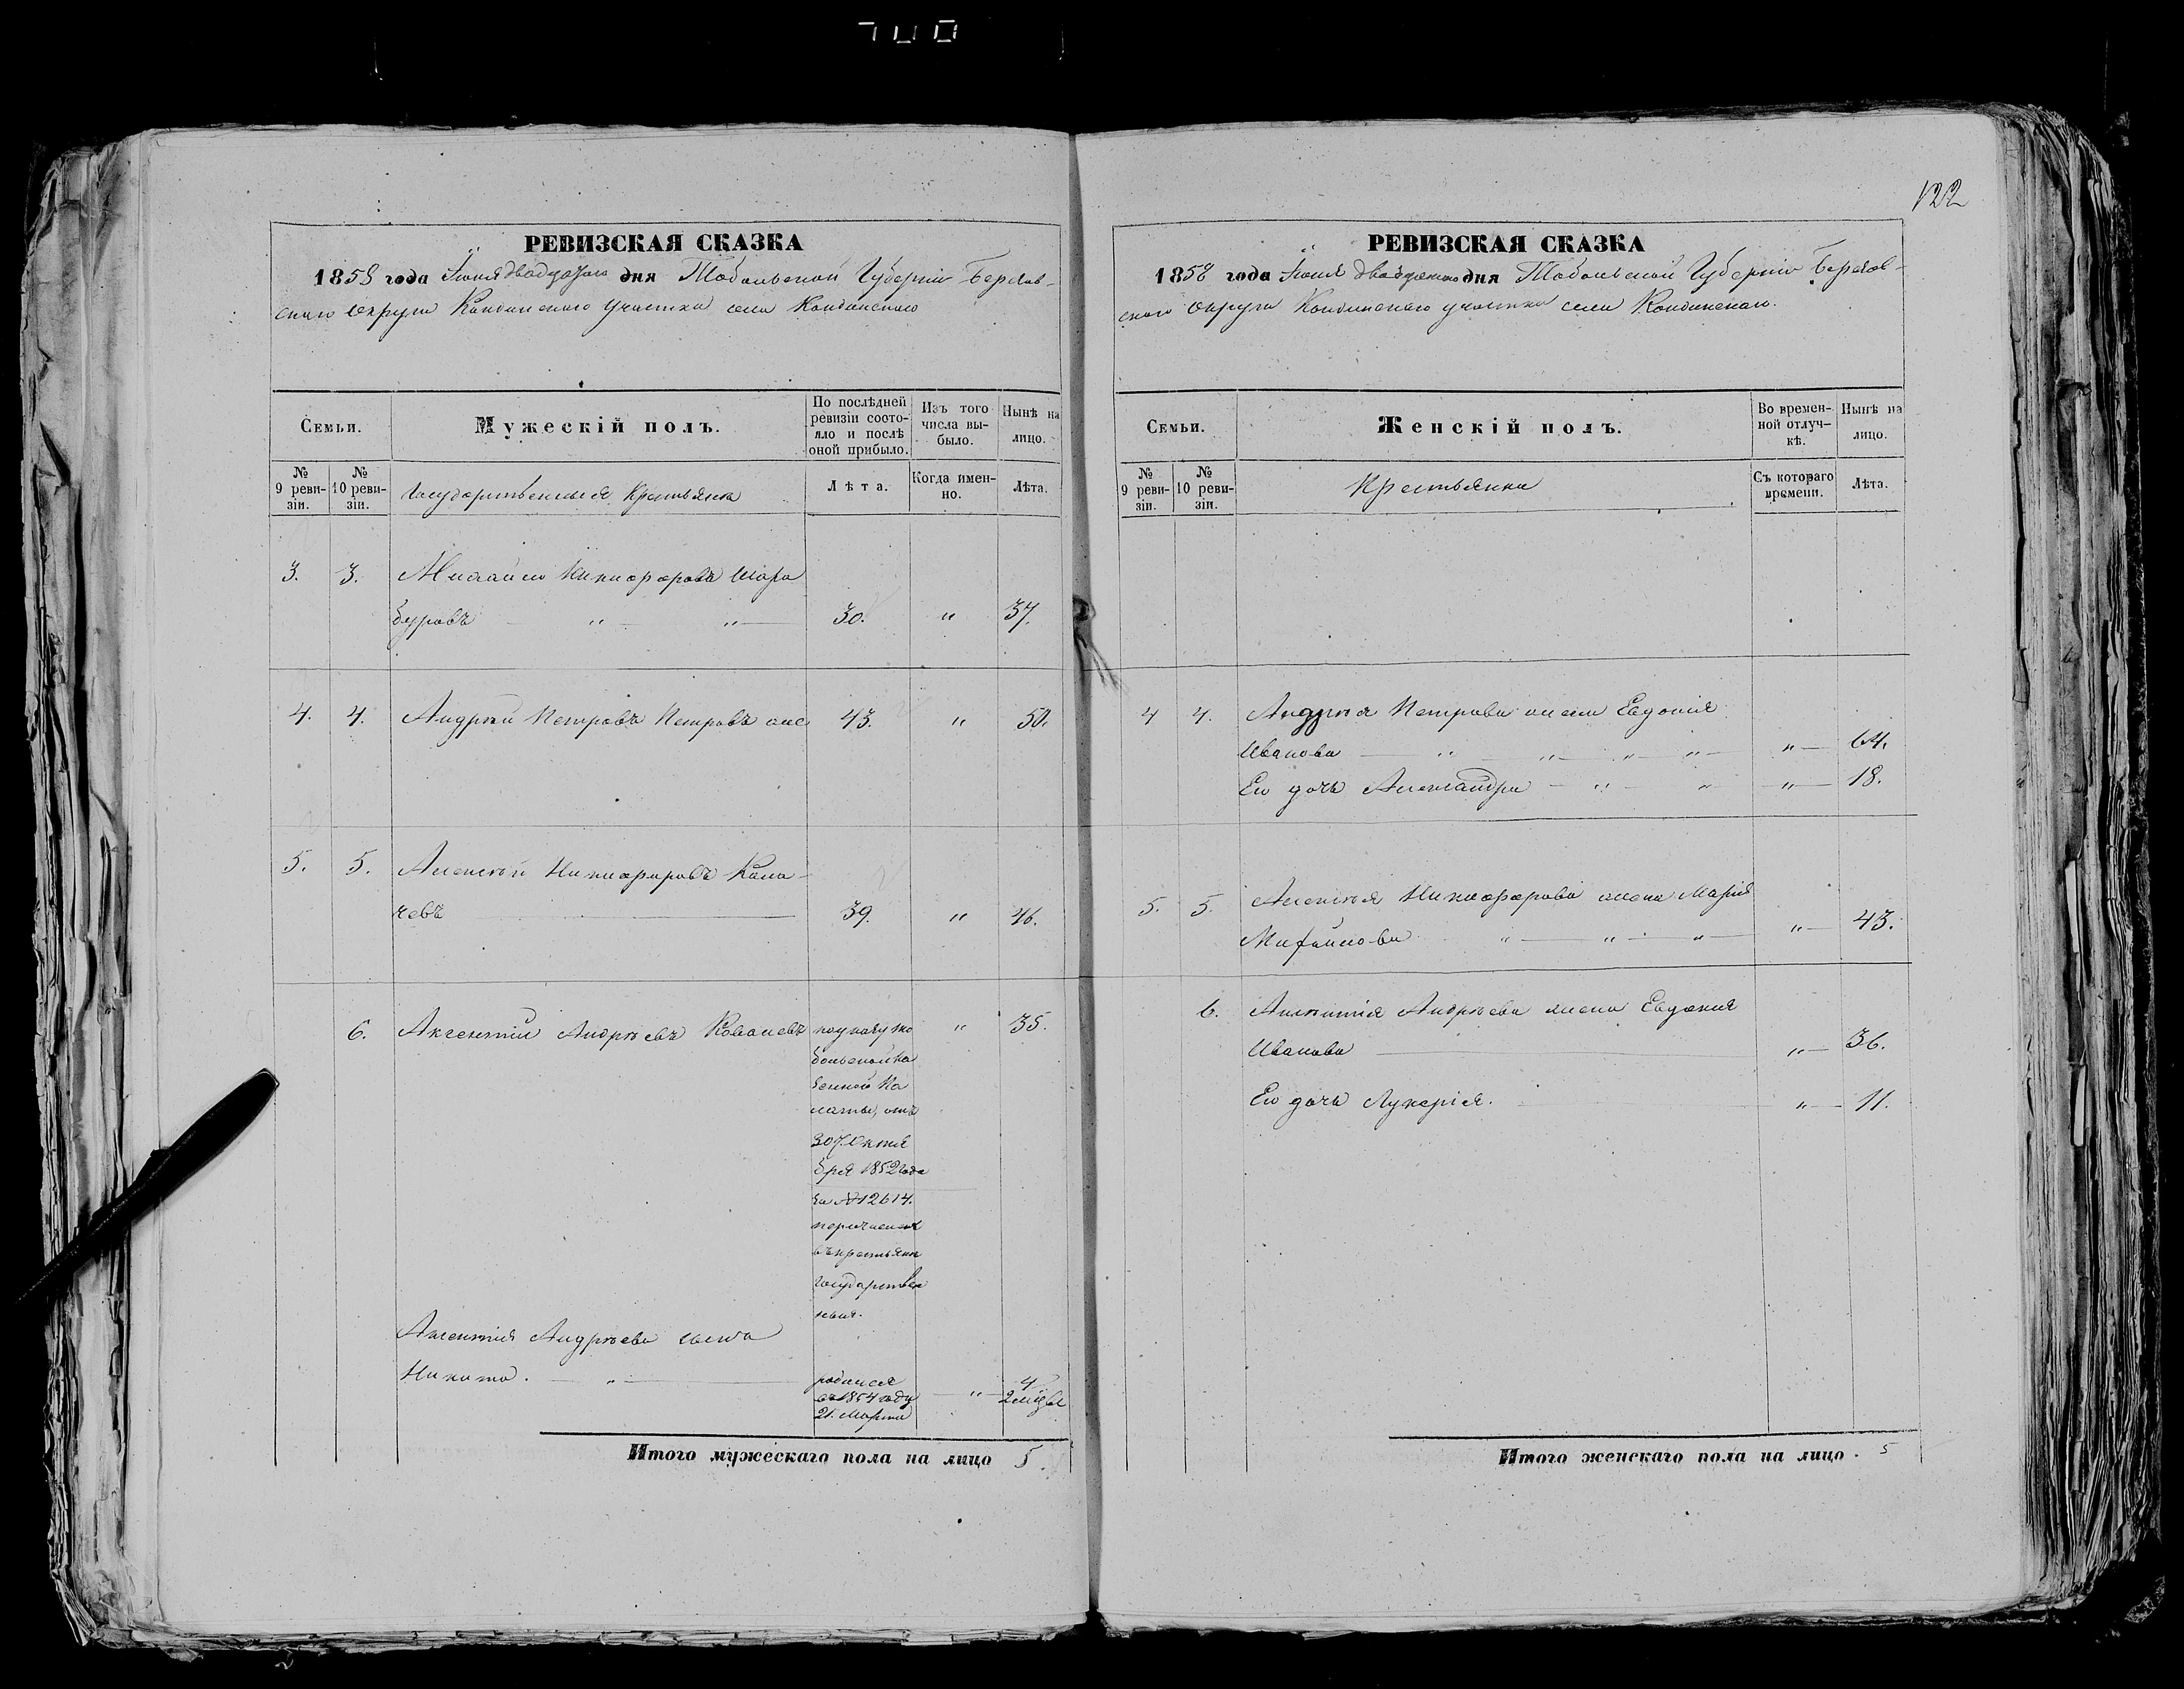 122
РЕВИЗСКАЯ СКАЗКА
1858 года Іюня двадцатаго дня Тобольской Губерніи Березов-
скаго Округа Кондинскаго участка села Кондинскаго
Семьи.
Мужескій полъ.
По послѣдней ревизіи состо-
яло и послѣ оной прибыло.
Изъ того числа вы-
было.
Нынѣ на лицо.
№ 9 реви-
зіи.
№ 10 реви-
зіи.
Государственные Крестьяне
Лѣта.
Когда имен-
но.
Лѣта.
3. 3. Михайло Никифоровъ Шара
буровъ " " 30. " 37.
4. 4. Андрей Петровъ Петровъ же 43. " 50.
5. 5. Алексѣй Никифоровъ
чевъ 39. " 46.
6. Аксентій Андрѣевъ " 35.
по указу То
больской Ка
зенной Па
латы, отъ
30/. Октя
бря 1852 года
за № 12614.
перечисленъ
въ крестьяне
государствен
ныя.
Аксентія Андрѣева сынъ
Никита. " родился
въ 1854 году
21. Марта " 4
2 мѣсяц
Итого мужескаго пола на лицо 5.
РЕВИЗСКАЯ СКАЗКА
1858 года Іюня двадцатаго дня Тобольской Губерніи Березов-
скаго Округа Кондинскаго участка села Кондинскаго.
Семьи.
Женскій полъ.
Во времен-
ной отлуч-
кѣ.
Нынѣ на лицо.
№ 9 реви-
зіи.
№ 10 реви-
зіи.
Крестьянки
Съ котораго времени.
Лѣта.
4 4. Андрѣя Петрова жена Евдокія
Иванова " " " " " 64.
Его дочь Александра " " " 18.
5. 5. Алексѣя Никифорова жена Марія
Михайлова " " " " 43.
6. Аксентія Андрѣева жена Евдокия
Иванова " 36.
Его дочь Лукерія. " 11.
Итого женскаго пола на лицо. 5